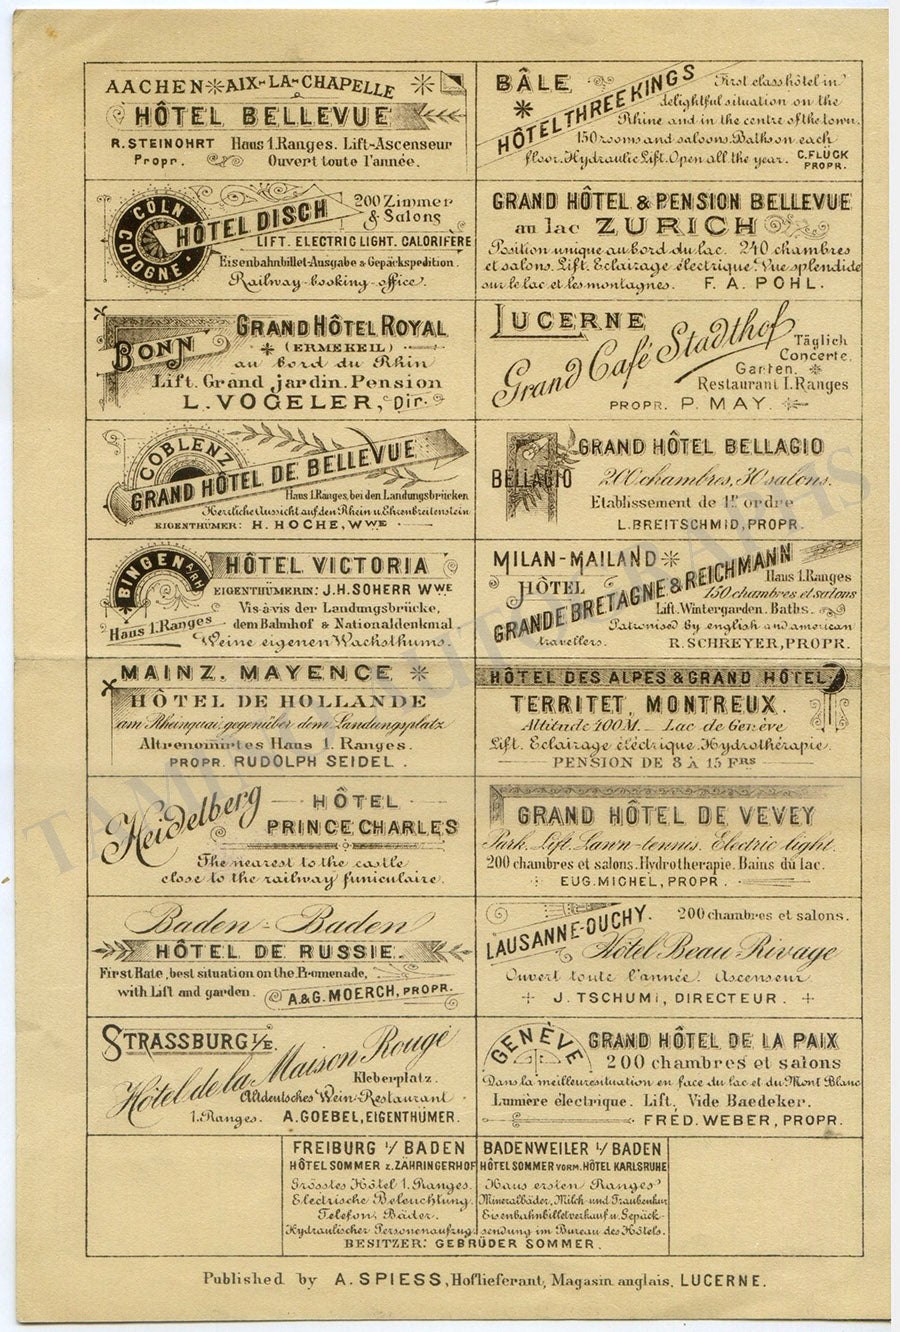 AACHEN AIX-LA-CHAPELLE
HÔTEL BELLEVUE
R. STEINOHRT Haus 1.Ranges. Lift-Ascenseur
Propr. Ouvert toute l'année.
BÂLE
HÔTEL THREE KINGS
First class hôtel in
delightful situation on the
Rhine and in the centre of the town.
150 rooms and saloons. Baths on each
floor. Hydraulic Lift. Open all the year. C. FLÜCK
PROPR.
CÖLN
COLOGNE
HÔTEL DISCH
200 Zimmer
& Salons
LIFT. ELECTRIC LIGHT. CALORIFÈRE
Eisenbahnbillet-Ausgabe & Gepäckspedition.
Railway-booking-office.
GRAND HÔTEL & PENSION BELLEVUE
au lac ZURICH
Position unique au bord du lac. 240 chambres
et salons. Lift. Eclairage électrique. Vue splendide
sur le lac et les montagnes. F. A. POHL.
BONN
GRAND HÔTEL ROYAL
(ERMEKEIL)
au bord du Rhin
Lift. Grand jardin. Pension
L. VOGELER, Dir.
LUCERNE
Grand Café Stadthof
Täglich
Concerte.
Garten.
Restaurant I. Ranges
PROPR. P. MAY.
COBLENZ
GRAND HÔTEL DE BELLEVUE
Haus 1.Ranges, bei den Landungsbrücken
Herrliche Aussicht auf den Rhein u. Ehrenbreitenstein
EIGENTHÜMER: H. HOCHE, WWE
BELLAGIO
GRAND HÔTEL BELLAGIO
200 chambres, 30 salons.
Etablissement de 1er ordre
L. BREITSCHMID, PROPR.
BINGEN A/RH
HÔTEL VICTORIA
EIGENTHÜMERIN: J. H. SOHERR WWE
Haus 1. Ranges
Vis-à-vis der Landungsbrücke,
dem Bahnhof & Nationaldenkmal.
Weine eigenen Wachsthums.
MILAN-MAILAND
HÔTEL
GRANDE BRETAGNE & REICHMANN
Haus 1.Ranges
150 chambres et salons
Lift. Wintergarden. Baths.
Patronised by english and american
travellers. R. SCHREYER, PROPR.
MAINZ. MAYENCE
HÔTEL DE HOLLANDE
am Rheinquai, gegenüber dem Landungsplatz
Altrenomirtes Haus 1. Ranges.
PROPR. RUDOLPH SEIDEL.
HÔTEL DES ALPES & GRAND HÔTEL
TERRITET, MONTREUX.
Altitude 400 M. - Lac de Genève
Lift. Eclairage éléctrique. Hydrothérapie.
PENSION DE 8 À 15 FRS
Heidelberg
HÔTEL
PRINCE CHARLES
The nearest to the castle
close to the railway funiculaire.
GRAND HÔTEL DE VEVEY
Park. Lift. Lawn-tennis. Electric light.
200 chambres et salons. Hydrotherapie. Bains du lac.
EUG. MICHEL, PROPR.
Baden-Baden
HÔTEL DE RUSSIE.
First Rate, best situation on the Promenade,
with Lift and garden. A. & G. MOERCH, PROPR.
LAUSANNE-OUCHY.
200 chambres et salons.
Hôtel Beau Rivage
Ouvert toute l'année. Ascenseur
J. TSCHUMI, DIRECTEUR.
STRASSBURG i/E.
Hôtel de la Maison Rouge
Kleberplatz.
Altdeutsches Wein-Restaurant
1. Ranges. A. GOEBEL, EIGENTHÜMER.
GENÈVE
GRAND HÔTEL DE LA PAIX
200 chambres et salons
Dans la meilleure situation en face du lac et du Mont Blanc
Lumière électrique. Lift. Vide Baedeker.
FRÉD. WEBER, PROPR.
FREIBURG i/ BADEN
HÔTEL SOMMER z. ZÄHRINGERHOF
Grösstes Hôtel 1. Ranges.
Electrische Beleuchtung.
Telefon. Bäder.
Hydraulischer Personenaufzug.
BADENWEILER i/ BADEN
HÔTEL SOMMER VORM. HÔTEL KARLSRUHE
Haus ersten Ranges
Mineralbäder, Milch- und Traubenkur
Eisenbahnbilletverkauf u. Gepäck-
sendung im Bureau des Hôtels.
BESITZER: GEBRÜDER SOMMER.
Published by A. SPIESS, Hoflieferant, Magasin anglais, LUCERNE.